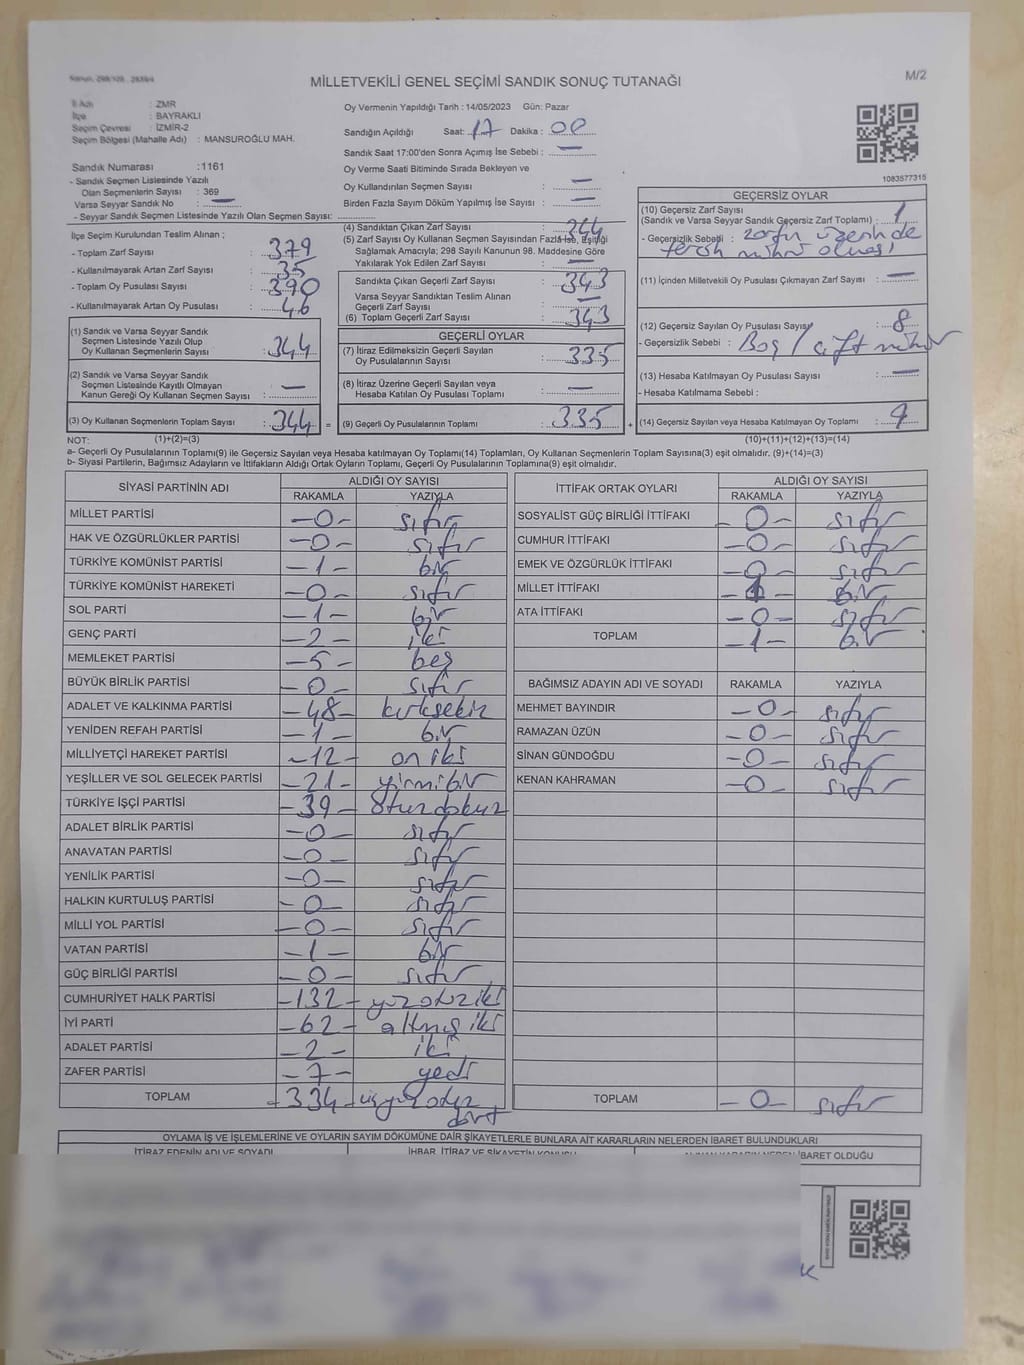 M/2
MİLLETVEKİLİ GENEL SEÇİMİ SANDIK SONUÇ TUTANAĞI
İl Adı : ZMR
İlçe : BAYRAKLI
Seçim Çevresi : İZMİR-2
Seçim Bölgesi (Mahalle Adı) : MANSUROĞLU MAH.
Sandık Numarası : 1161
- Sandık Seçmen Listesinde Yazılı
Olan Seçmenlerin Sayısı : 369
Varsa Seyyar Sandık No : —
- Seyyar Sandık Seçmen Listesinde Yazılı Olan Seçmen Sayısı:
Oy Vermenin Yapıldığı Tarih : 14/05/2023 Gün: Pazar
Sandığın Açıldığı Saat: 17 Dakika : 00
Sandık Saat 17:00'den Sonra Açımış İse Sebebi : —
Oy Verme Saati Bitiminde Sırada Bekleyen ve
Oy Kullandırılan Seçmen Sayısı : —
Birden Fazla Sayım Döküm Yapılmış İse Sayısı : —
1083577315
İlçe Seçim Kurulundan Teslim Alınan ;
- Toplam Zarf Sayısı : 379
- Kullanılmayarak Artan Zarf Sayısı : 35
- Toplam Oy Pusulası Sayısı : 390
- Kullanılmayarak Artan Oy Pusulası : 46
(1) Sandık ve Varsa Seyyar Sandık
Seçmen Listesinde Yazılı Olup
Oy Kullanan Seçmenlerin Sayısı : 344
(2) Sandık ve Varsa Seyyar Sandık
Seçmen Listesinde Kayıtlı Olmayan
Kanun Gereği Oy Kullanan Seçmen Sayısı : —
(3) Oy Kullanan Seçmenlerin Toplam Sayısı : 344 =
(4) Sandıktan Çıkan Zarf Sayısı : 344
(5) Zarf Sayısı Oy Kullanan Seçmen Sayısından Fazla İse, Eşitliği
Sağlamak Amacıyla; 298 Sayılı Kanunun 98. Maddesine Göre
Yakılarak Yok Edilen Zarf Sayısı : —
Sandıkta Çıkan Geçerli Zarf Sayısı : 343
Varsa Seyyar Sandıktan Teslim Alınan
Geçerli Zarf Sayısı : —
(6) Toplam Geçerli Zarf Sayısı : 343
GEÇERLİ OYLAR
(7) İtiraz Edilmeksizin Geçerli Sayılan
Oy Pusulalarının Sayısı : 335
(8) İtiraz Üzerine Geçerli Sayılan veya
Hesaba Katılan Oy Pusulası Toplamı : —
(9) Geçerli Oy Pusulalarının Toplamı : 335 +
GEÇERSİZ OYLAR
(10) Geçersiz Zarf Sayısı
(Sandık ve Varsa Seyyar Sandık Geçersiz Zarf Toplamı) : 1
- Geçersizlik Sebebi : zarfın üzerinde
tercih mührü olması
(11) İçinden Milletvekili Oy Pusulası Çıkmayan Zarf Sayısı : —
(12) Geçersiz Sayılan Oy Pusulası Sayısı : 8
- Geçersizlik Sebebi : Boş / çift mühür
(13) Hesaba Katılmayan Oy Pusulası Sayısı : —
- Hesaba Katılmama Sebebi :
(14) Geçersiz Sayılan veya Hesaba Katılmayan Oy Toplamı : 9
NOT: (1)+(2)=(3) (10)+(11)+(12)+(13)=(14)
a- Geçerli Oy Pusulalarının Toplamı(9) ile Geçersiz Sayılan veya Hesaba katılmayan Oy Toplamı(14) Toplamları, Oy Kullanan Seçmenlerin Toplam Sayısına(3) eşit olmalıdır. (9)+(14)=(3)
b- Siyasi Partilerin, Bağımsız Adayların ve İttifakların Aldığı Ortak Oyların Toplamı, Geçerli Oy Pusulalarının Toplamına(9) eşit olmalıdır.
SİYASİ PARTİNİN ADI ALDIĞI OY SAYISI
RAKAMLA YAZIYLA
MİLLET PARTİSİ —0— sıfır
HAK VE ÖZGÜRLÜKLER PARTİSİ —0— sıfır
TÜRKİYE KOMÜNİST PARTİSİ —1— bir
TÜRKİYE KOMÜNİST HAREKETİ —0— sıfır
SOL PARTİ —1— bir
GENÇ PARTİ —2— iki
MEMLEKET PARTİSİ —5— beş
BÜYÜK BİRLİK PARTİSİ —0— sıfır
ADALET VE KALKINMA PARTİSİ —48— kırksekiz
YENİDEN REFAH PARTİSİ —1— bir
MİLLİYETÇİ HAREKET PARTİSİ —12— on iki
YEŞİLLER VE SOL GELECEK PARTİSİ —21— yirmibir
TÜRKİYE İŞÇİ PARTİSİ —39— otuzdokuz
ADALET BİRLİK PARTİSİ —0— sıfır
ANAVATAN PARTİSİ —0— sıfır
YENİLİK PARTİSİ —0— sıfır
HALKIN KURTULUŞ PARTİSİ —0— sıfır
MİLLİ YOL PARTİSİ —0— sıfır
VATAN PARTİSİ —1— bir
GÜÇ BİRLİĞİ PARTİSİ —0— sıfır
CUMHURİYET HALK PARTİSİ —132— yüzotuziki
İYİ PARTİ —62— altmış iki
ADALET PARTİSİ —2— iki
ZAFER PARTİSİ —7— yedi
TOPLAM —334— üçyüzotuz
dört
İTTİFAK ORTAK OYLARI ALDIĞI OY SAYISI
RAKAMLA YAZIYLA
SOSYALİST GÜÇ BİRLİĞİ İTTİFAKI —0— sıfır
CUMHUR İTTİFAKI —0— sıfır
EMEK VE ÖZGÜRLÜK İTTİFAKI —0— sıfır
MİLLET İTTİFAKI —1— bir
ATA İTTİFAKI —0— sıfır
TOPLAM —1— bir
BAĞIMSIZ ADAYIN ADI VE SOYADI RAKAMLA YAZIYLA
MEHMET BAYINDIR —0— sıfır
RAMAZAN ÜZÜN —0— sıfır
SİNAN GÜNDOĞDU —0— sıfır
KENAN KAHRAMAN —0— sıfır
TOPLAM —0— sıfır
OYLAMA İŞ VE İŞLEMLERİNE VE OYLARIN SAYIM DÖKÜMÜNE DAİR ŞİKAYETLERLE BUNLARA AİT KARARLARIN NELERDEN İBARET BULUNDUKLARI
İTİRAZ EDENİN ADI VE SOYADI İHBAR, İTİRAZ VE ŞİKAYETİN KONUSU İBARET OLDUĞU